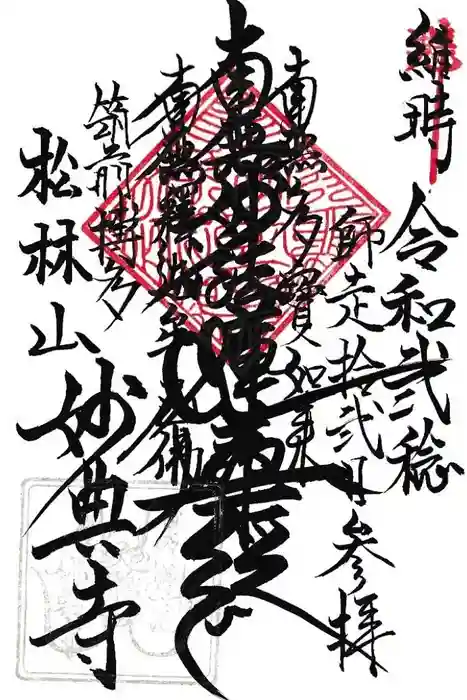 維時 令和弐稔
師走拾弐日参拝
南無多寳如来
南無妙法蓮華経
南無釋迦牟尼佛
筑前博多
松林山 妙典寺